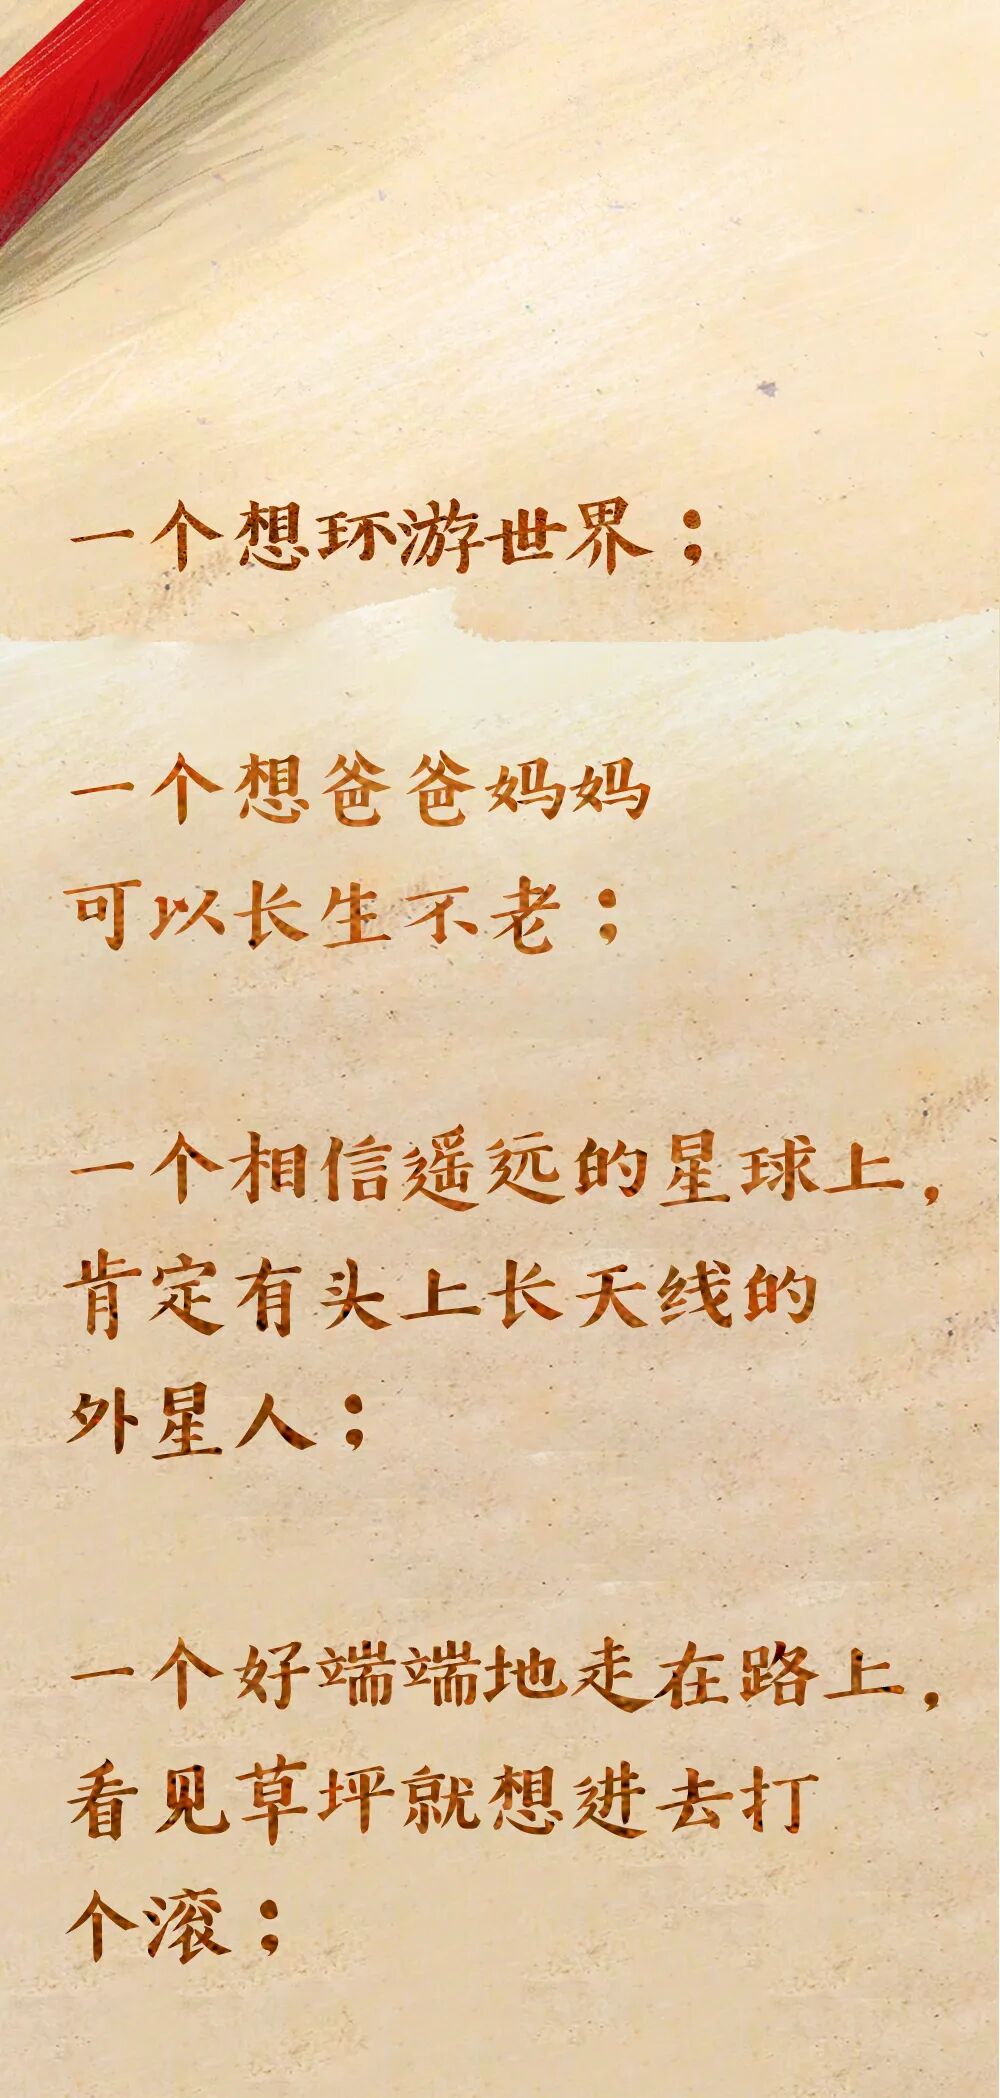 一个想环游世界；
一个想爸爸妈妈
可以长生不老；
一个相信遥远的星球上，
肯定有头上长天线的
外星人；
一个好端端地走在路上，
看见草坪就想进去打
个滚；